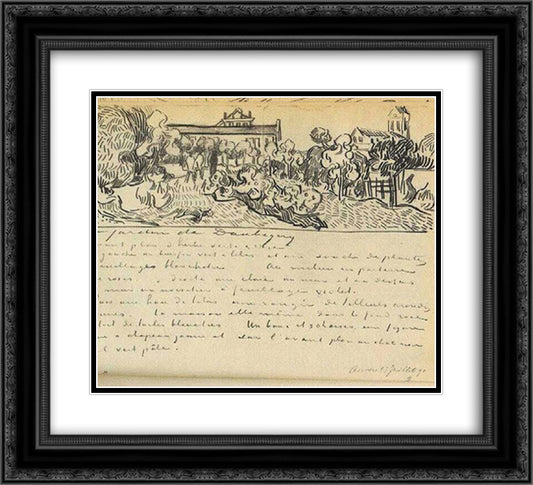 jardin de Daubigny
plan d'herbe verte et rose
gauche un buisson vert et lilas et une souche de plante
feuillages blanchâtres. Au milieu un parterre
roses à droite une claie un mur et au dessus
mur un noisetier à feuillage violet.
une haie de lilas une rangée de tilleuls arrondis
la maison elle même dans le fond rose
toit de tuiles bleuâtres Un banc et 3 chaises, une figure
chapeau jaune et sur l'avant plan un chat noir
vert pâle.